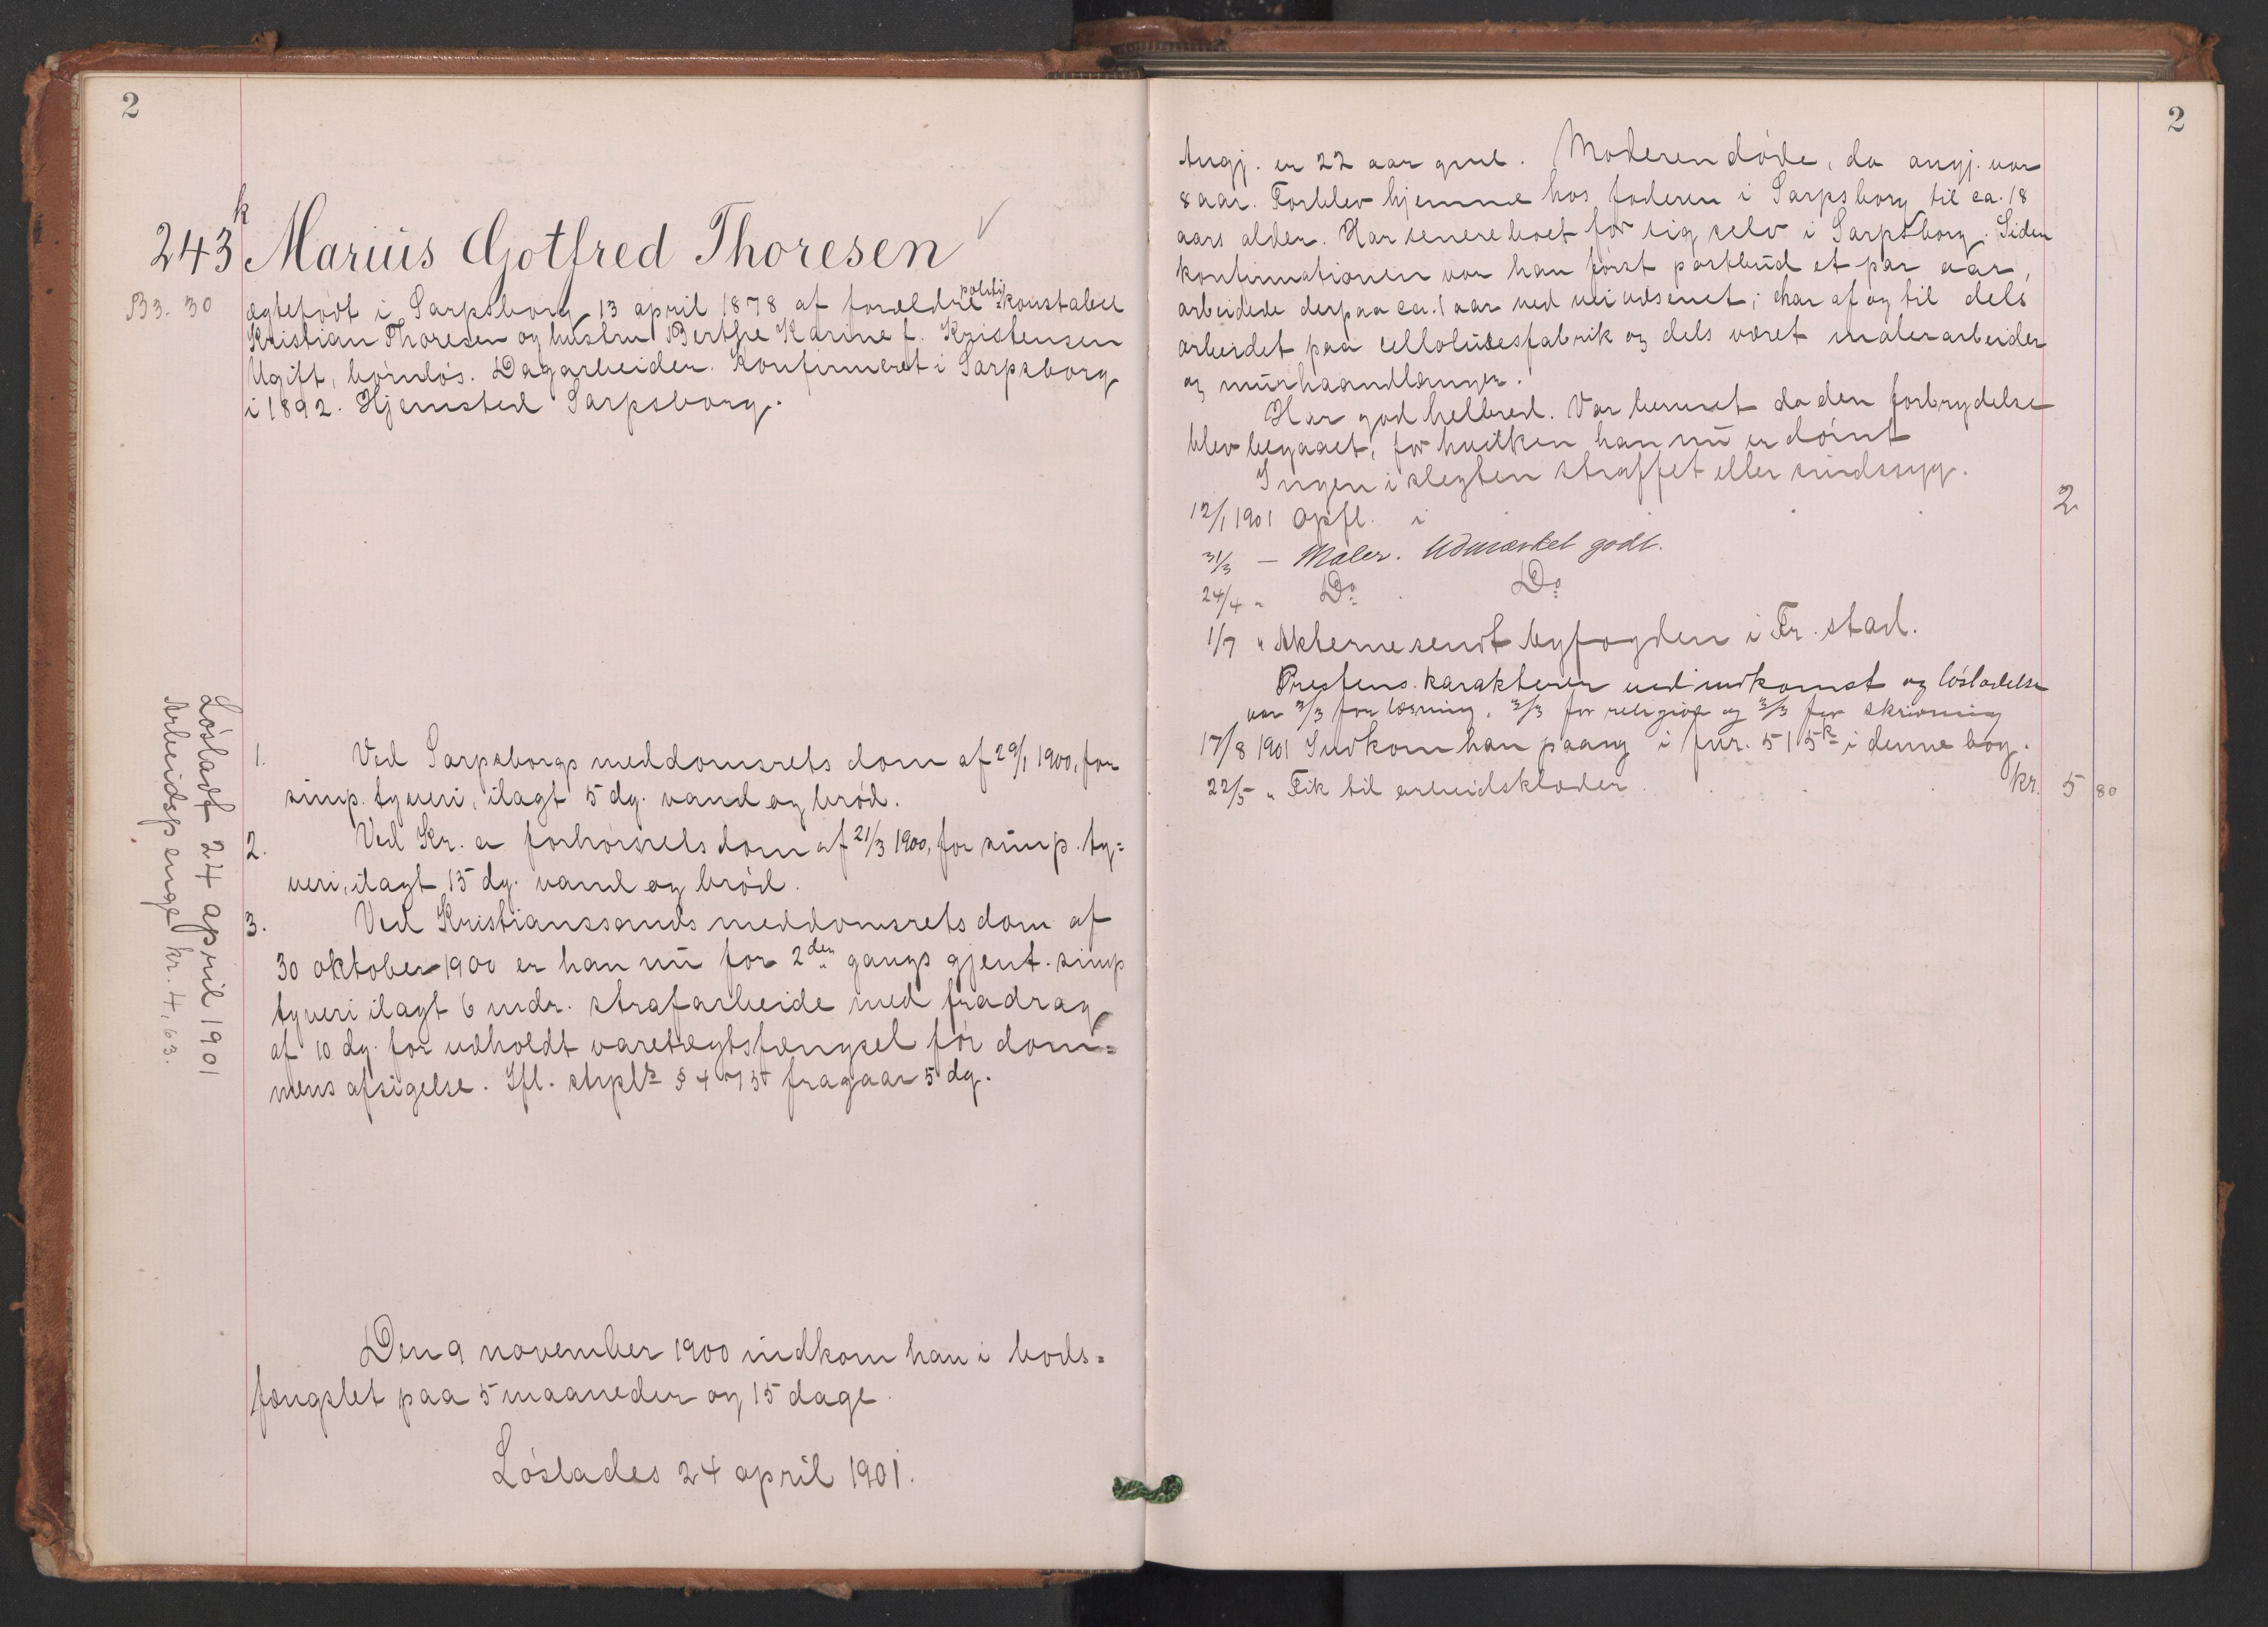 2
243k Marius Gotfred Thoresen
B3. 30
ægtefødt i Sarpsborg 13 april 1878 af forældre politi-konstabel
Kristian Thoresen og hustru Berthe Karine f. Kristensen
Ugift, barnløs. Dagarbeider. Konfirmeret i Sarpsborg
i 1892. Hjemsted Sarpsborg.
1. Ved Sarpsborgs meddomsrets dom af 29/1 1900, for
simp. tyveri, ilagt 5 dg. vand og brød.
2. Ved Kr. a forhørsrets dom af 21/3 1900, for simp. ty=
veri, ilagt 15 dg. vand og brød.
3. Ved Kristianssands meddomsrets dom af
30 oktober 1900 er han nu for 2den gangs gjent. simp
tyveri ilagt 6 mdr. strafarbeide med fradrag
af 10 dg. for udholdt varetægtsfængsel før dom=
mens afsigelse. Ifl. § 4 fragaar 5 dg.
Den 9 november 1900 indkom han i bods=
fængslet paa 5 maaneder og 15 dage.
Løslades 24 april 1901.
Løsladt 24 april 1901
Arbeidspenge kr. 4,63.
2
Angj. er 22 aar gml. Moderen døde, da angj. var
8 aar. Forblev hjemme hos faderen i Sarpsborg til ca. 18
aars alder. Har senere boet for sig selv i Sarpsborg. Siden
konfirmationen var han først postbud et par aar,
arbeidede derpaa ca. 1 aar ved veivæsenet; har af og til dels
arbeidet paa cellulosefabrik og dels været malerarbeider
og murhaandlanger.
Har god helbred. Var beruset da den forbrydelse
blev begaaet, for hvilken han nu er dømt
Ingen i slegten straffet eller sindssyg.
12/1 1901 Opfl. i . . . 2
31/3 — Maler. Udmærket godt.
24/4 " Do. Do.
1/7 " Akterne sendt byfogden i Fr. stad.
Prestens karakterer ved indkomst og løsladelse
var 3/3 for læsning, 3/3 for religion og 3/3 for skrivning
17/8 1901 Indkom han paany i fnr. 515k i denne bog.
22/5 " Fik til arbeidsklæder . . . kr. 5 80